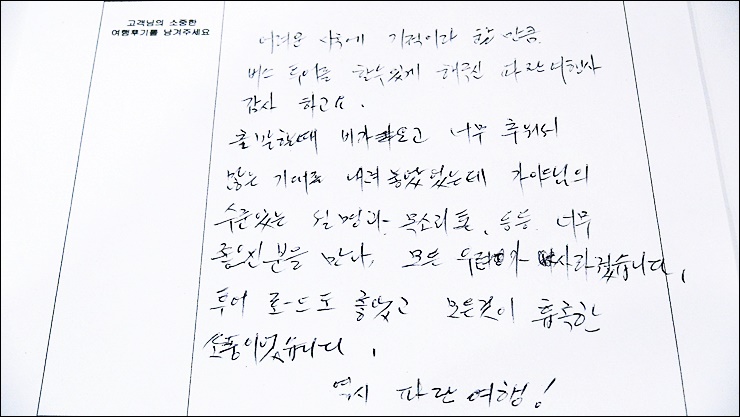 고객님의 소중한
여행후기를 남겨주세요
어려운 시국에 기적이라 할 만큼
버스 투어를 할수있게 해주신 파란여행사
감사 하고요.
출발할때 비가 오고 너무 추워서
많은 기대를 내려 놓았었는데 가이드님의
수준있는 설명과 목소리톤, 등등 너무
좋으신분을 만나, 모든 우려가 사라졌습니다.
투어 코스도 좋았고 모든것이 흡족한
소풍이었습니다.
역시 파란여행!